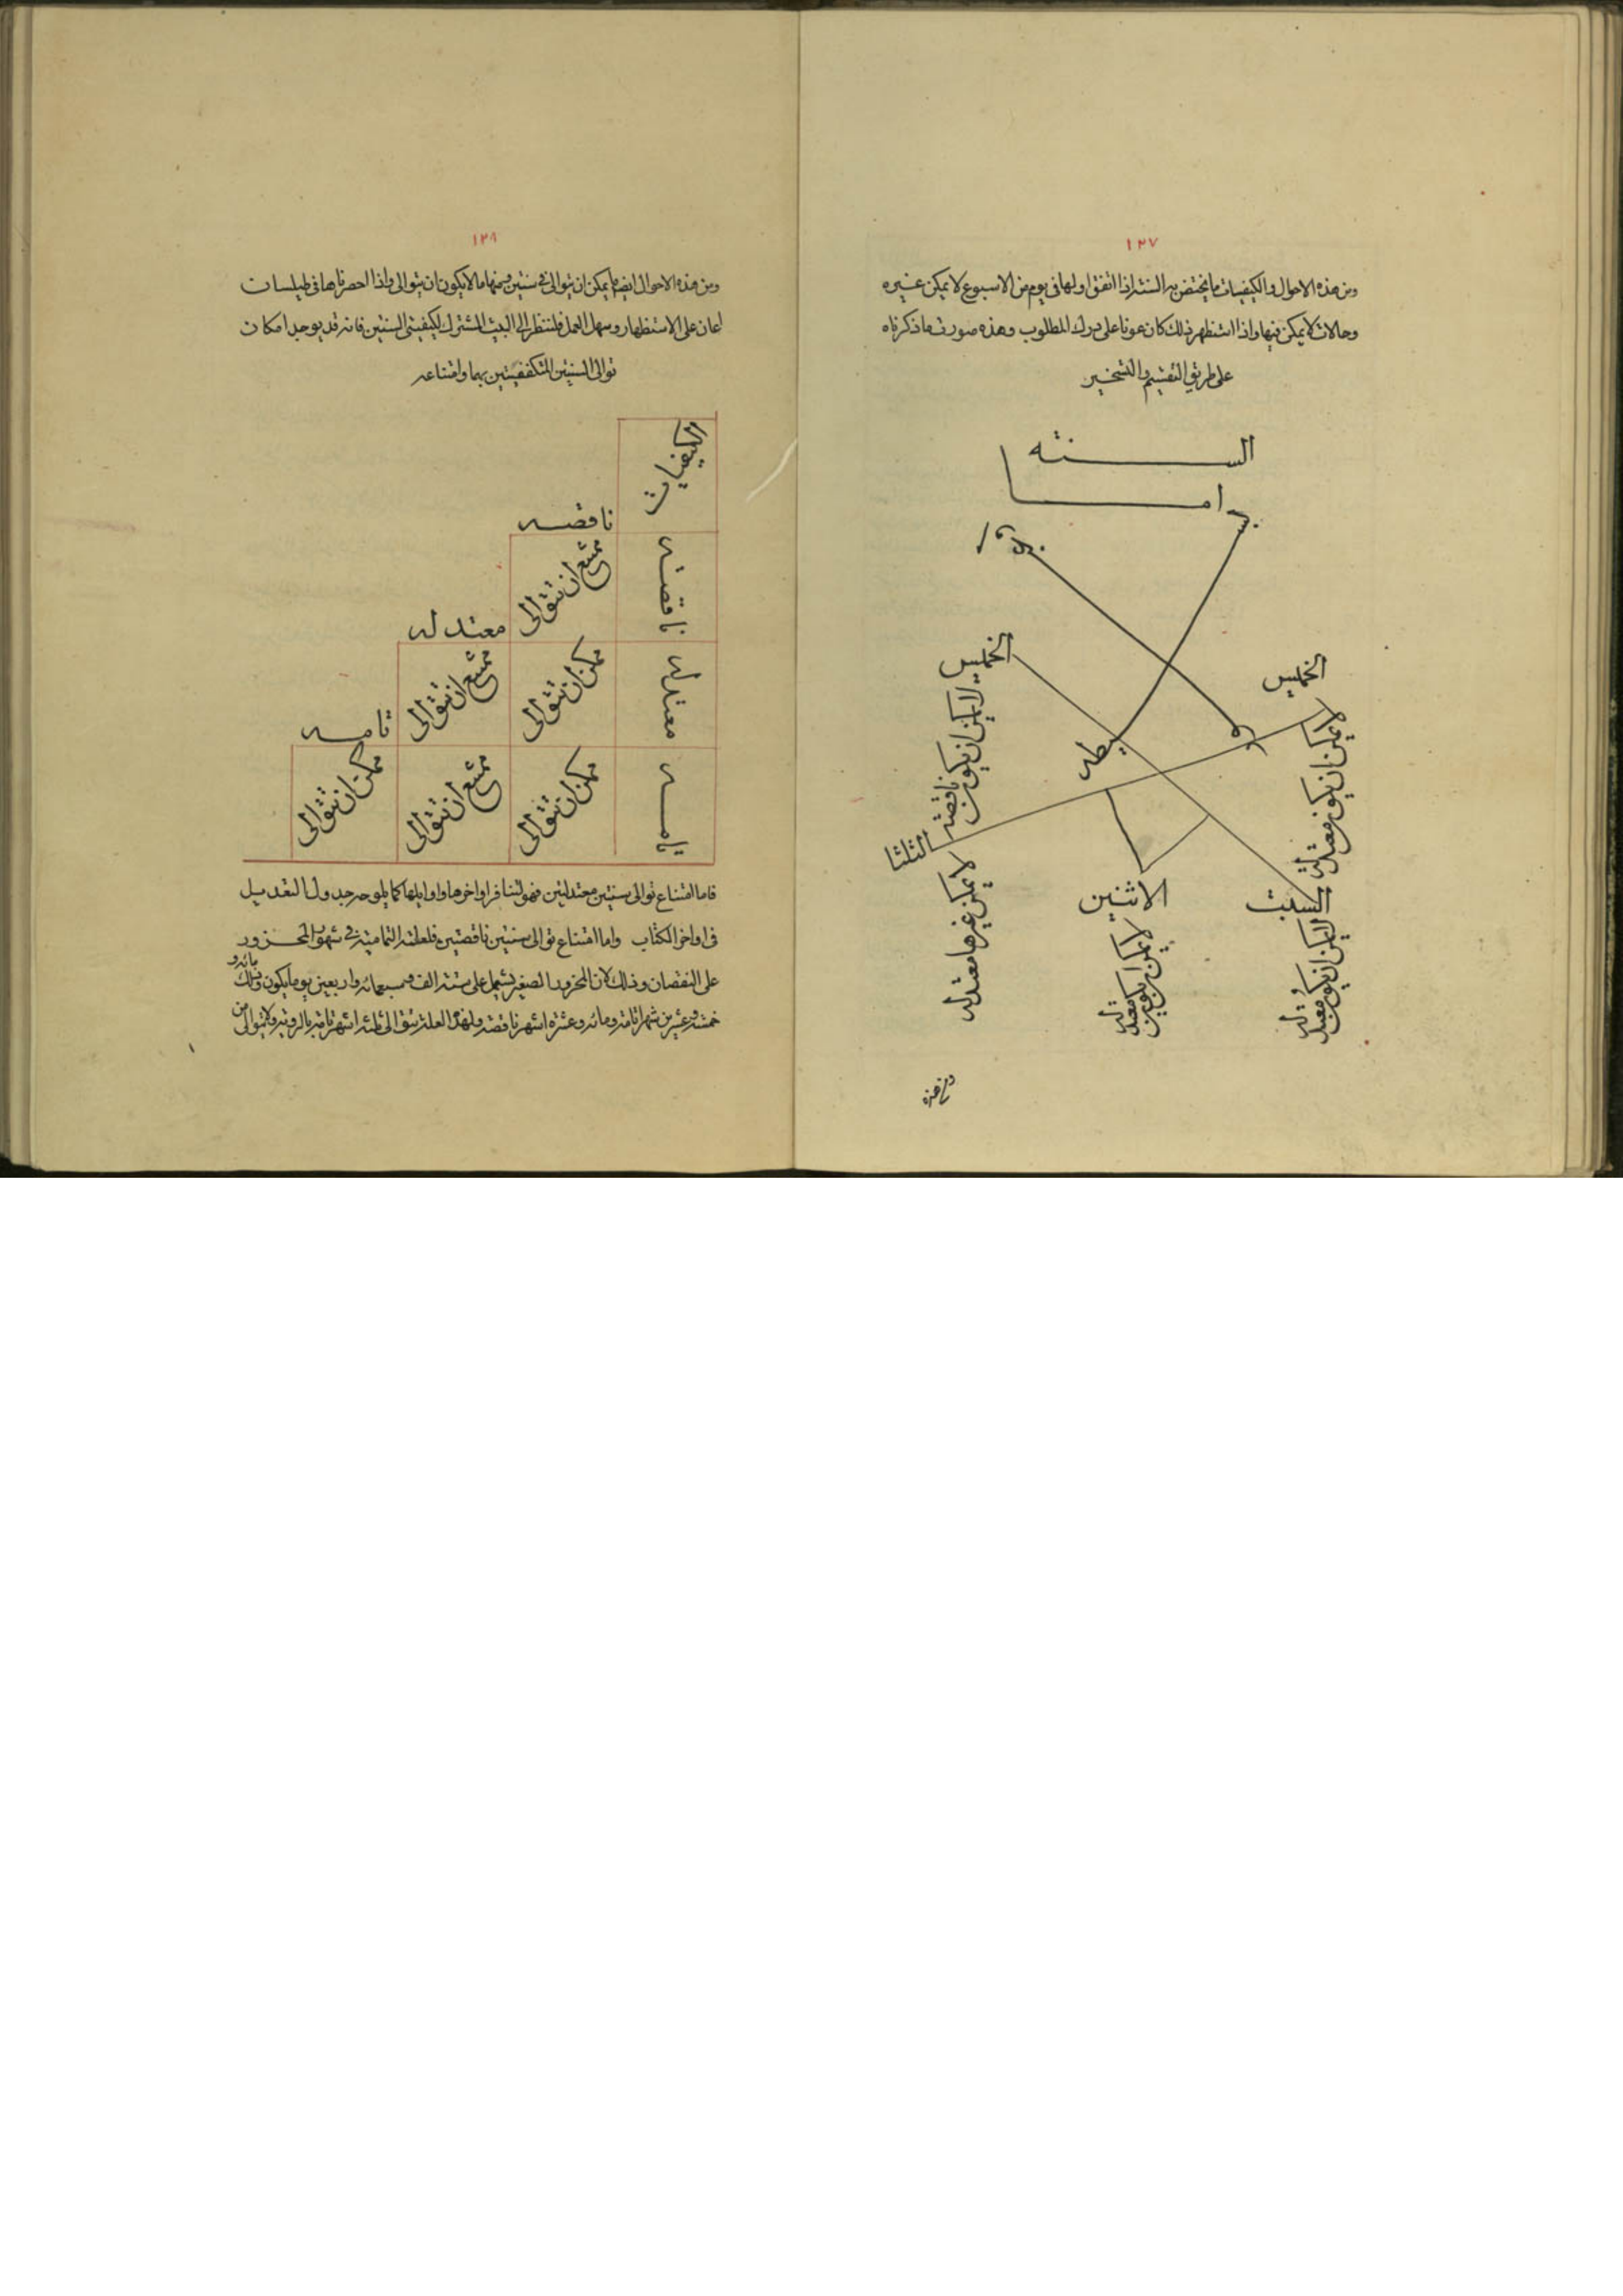 ١٢٧
ومن هذه الاحوال والكيفيات ما يختص به السنة اذا اتفق اولها فى يوم من الاسبوع لا يمكن غيره
وحالات لا يمكن فيها واذا استظهر ذلك كان عونا على درك المطلوب وهذه صورة ما ذكرناه
على طريق التقسيم والتشجير
السنه
اما
بسيطه
الخميس
لا يمكن ان يكون ناقصة
الخميس
لا يمكن ان يكون معتدلة
الثلثا
لا يمكن غيرها معتدله
الاثنين
لا يمكن ان يكون معتدله
السبت
لا يمكن ان يكون معتدله
ومن هذه
١٢٨
ومن هذه الاحوال ايضا ما يمكن ان يتوالى فى سنتين ومنها ما لا يكون ان يتوالى واذا احصرناها فى طيلسان
اعان على الاستظهار وسهل العمل فلننظر الى البيت المشترك لكيفيتى السنتين فانه قد يوجد امكان
توالى السنتين المتكيفتين بهما وامتناعه
الكيفيات
ناقصه
ناقصه
ممتنع ان تتوالى
معتدله
معتدله
ممكن ان تتوالى
ممتنع ان تتوالى
تامه
تامه
ممكن ان تتوالى
ممتنع ان تتوالى
ممكن ان تتوالى
فاما امتناع توالى سنتين معتدلتين فهو لتنافر اواخرها واوايلها كما يلوح جدول التعديل
فى اواخر الكتاب واما امتناع توالى سنتين ناقصتين فلعلة التمامية فى شهور المحزور
على النقصان وذلك لان المحزور الصغير يشتمل على ستة الف وتسعمائه واربعين يوما يكون ذلك مائه و
خمسة وعشرين شهرا تامة ومائه وعشرة اشهر ناقصة ولهذه العلة تتوالى ثلثه اشهر تامة بالروية ولا يتوالى من